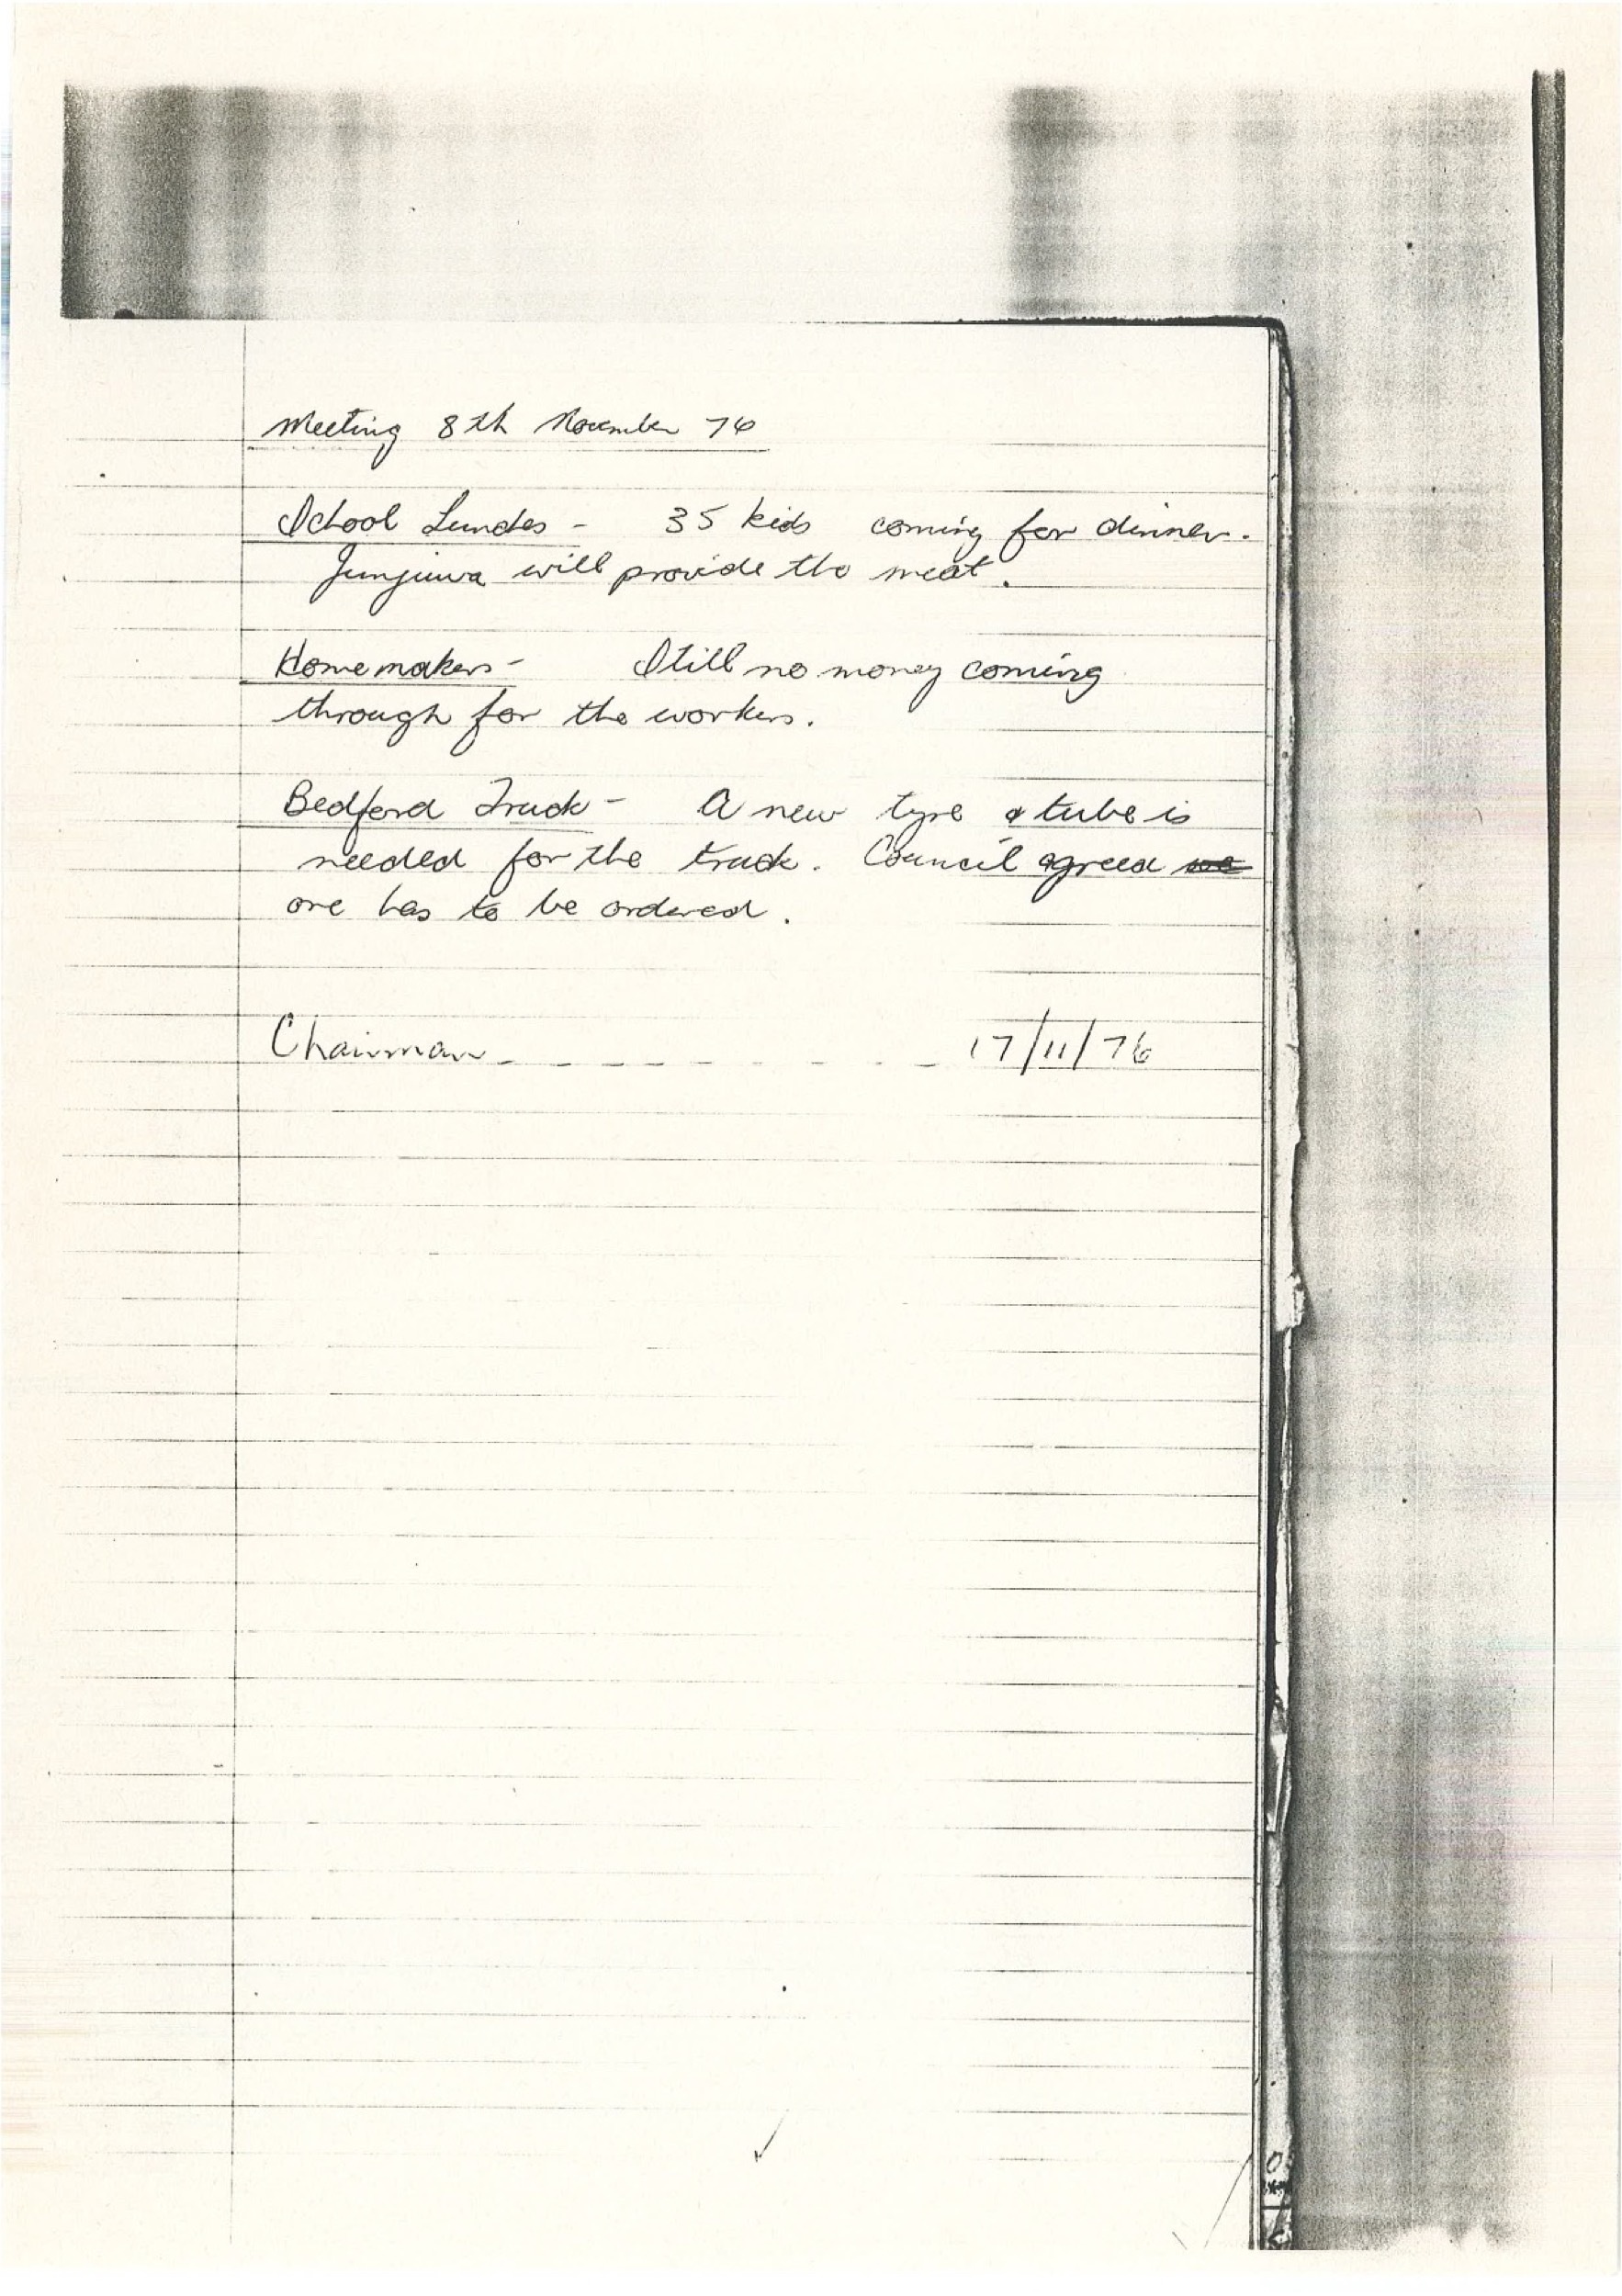 Meeting 8th November 76
School Lunches - 35 kids coming for dinner.
Junjuwa will provide the meat.
Homemakers - Still no money coming
through for the workers.
Bedford Truck - A new tyre & tube is
needed for the truck. Council agreed we
one has to be ordered.
Chairman 17/11/76